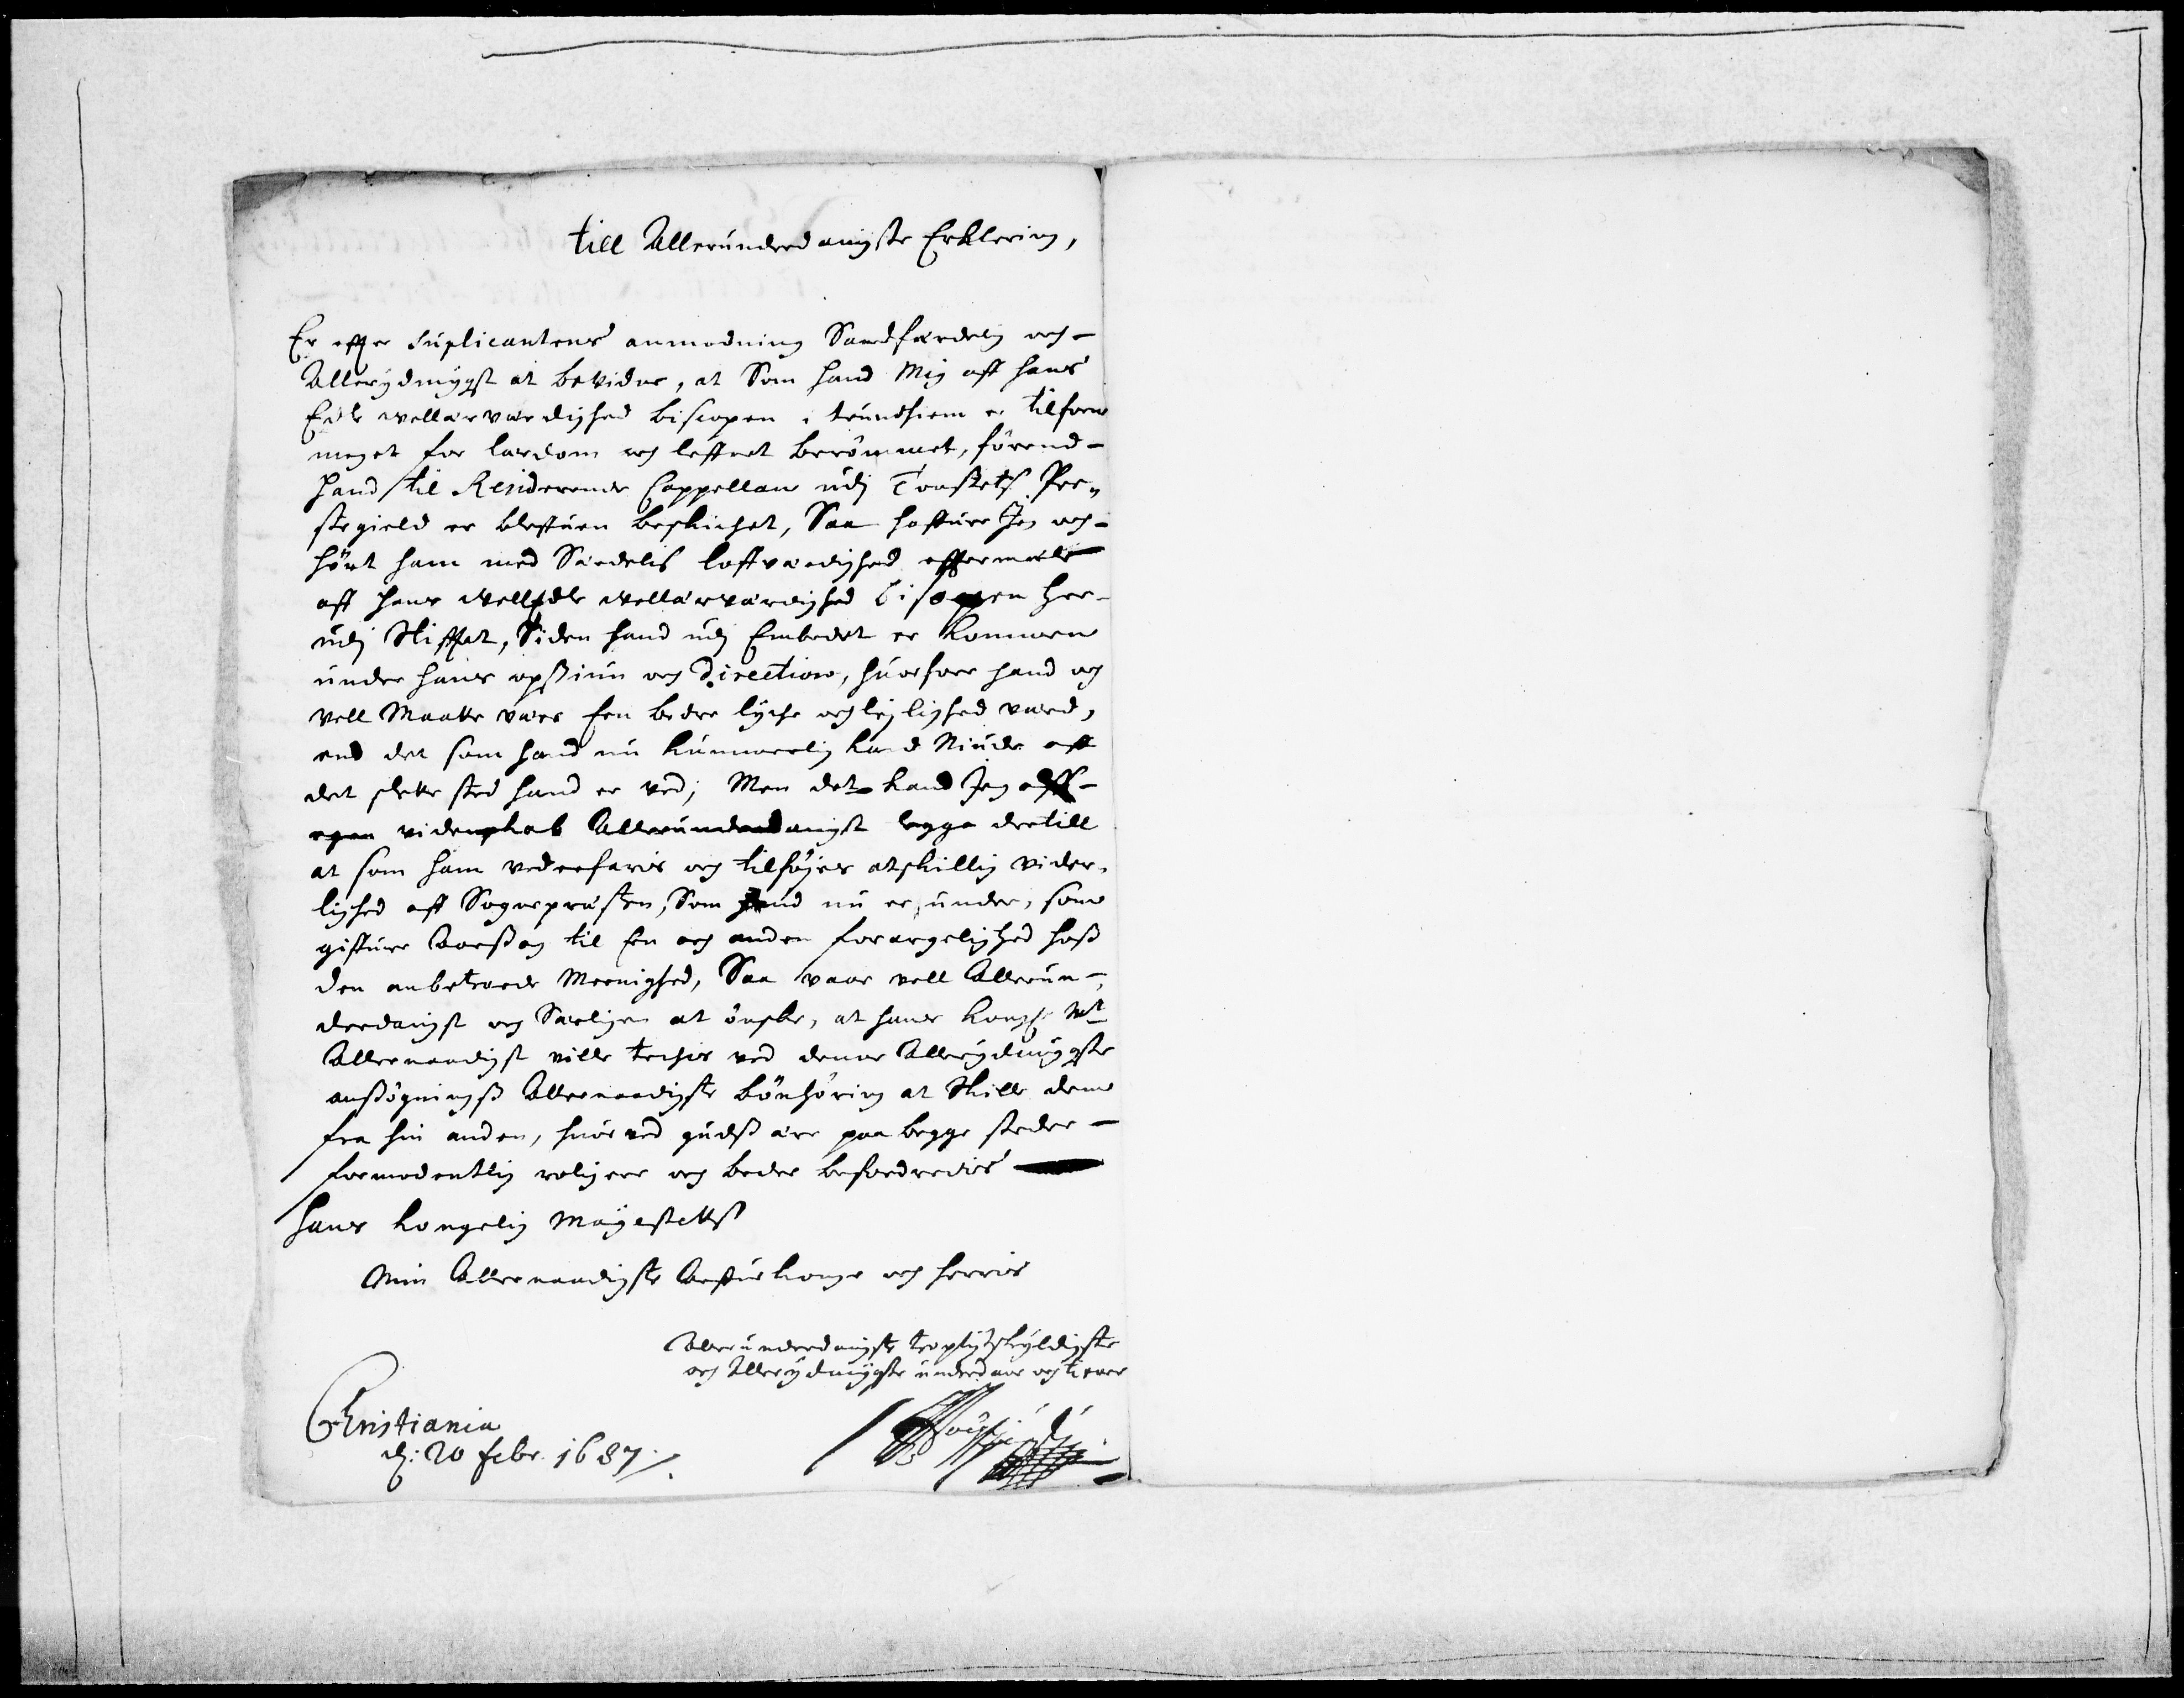 till Allerunderdanigste Erklering,
Er effter Suplicantens anmodning Sandfærdelig och
Allerydmygst at bevidne, at Som hand Mig aff hans
Edle vellærværdighed biscopen i trundhiem er tilforn
meget for lærdom och leffnet berömmet, förend
hand til Residerende Cappellan udj Traaststs Pre„
stegield er bleffuen beskichet, Saa haffuer Jeg och
hört ham med Særdelis loffværdighed effermæle
aff hans Velledle Vellærværdighed bisopen her„
udj Stifftet, Siden hand udj Embedet er kommen
under hans opsiun och Direction, huorfore hand og
vell Maatte være Een bedre lyche och lejlighed værd,
end det som hand nu kummerlig kand Niude aff
det slette sted hand er ved; Men det kand Jeg aff
egen videnskab Allerunderdanigst legge dertill
at som ham vederfaris och tilföjes atskillig vider„
lighed aff Sogneprästen, Som hand nu er under, som
giffuer Aarsag til Een och anden forargelighed hoss
den anbetroede Meenighed, Saa vaar vell Allerun„
derdanigst og Særligen at önske, at hans Kongl. Mt
Allernaadigst ville teckis ved denne Allerydmygste
ansögnings Allernaadigste bönhöring at Skille dem
fra hin anden, huor ved guds ære paa begge steder
formodentlig roligere och bedre befordredis
Hans Kongelig Mayestets
Min Allernaadigste Arffue Konge och herris
Allerunderdanigste troepligtskyldigste
och Allerydmygste underdaan och tiener
Christiania
d: 20 febr. 1687